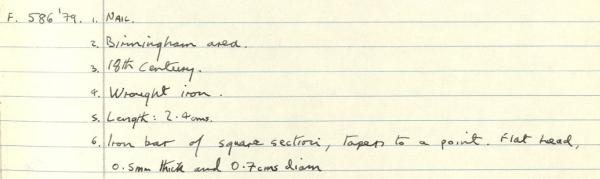 F. 586'79. 1. NAIL.
2. Birmingham area.
3. 18th Century.
4. Wrought iron.
5. Length: 2.4cms.
6. Iron bar of square section, tapers to a point. Flat head,
0.5mm thick and 0.7cms diam